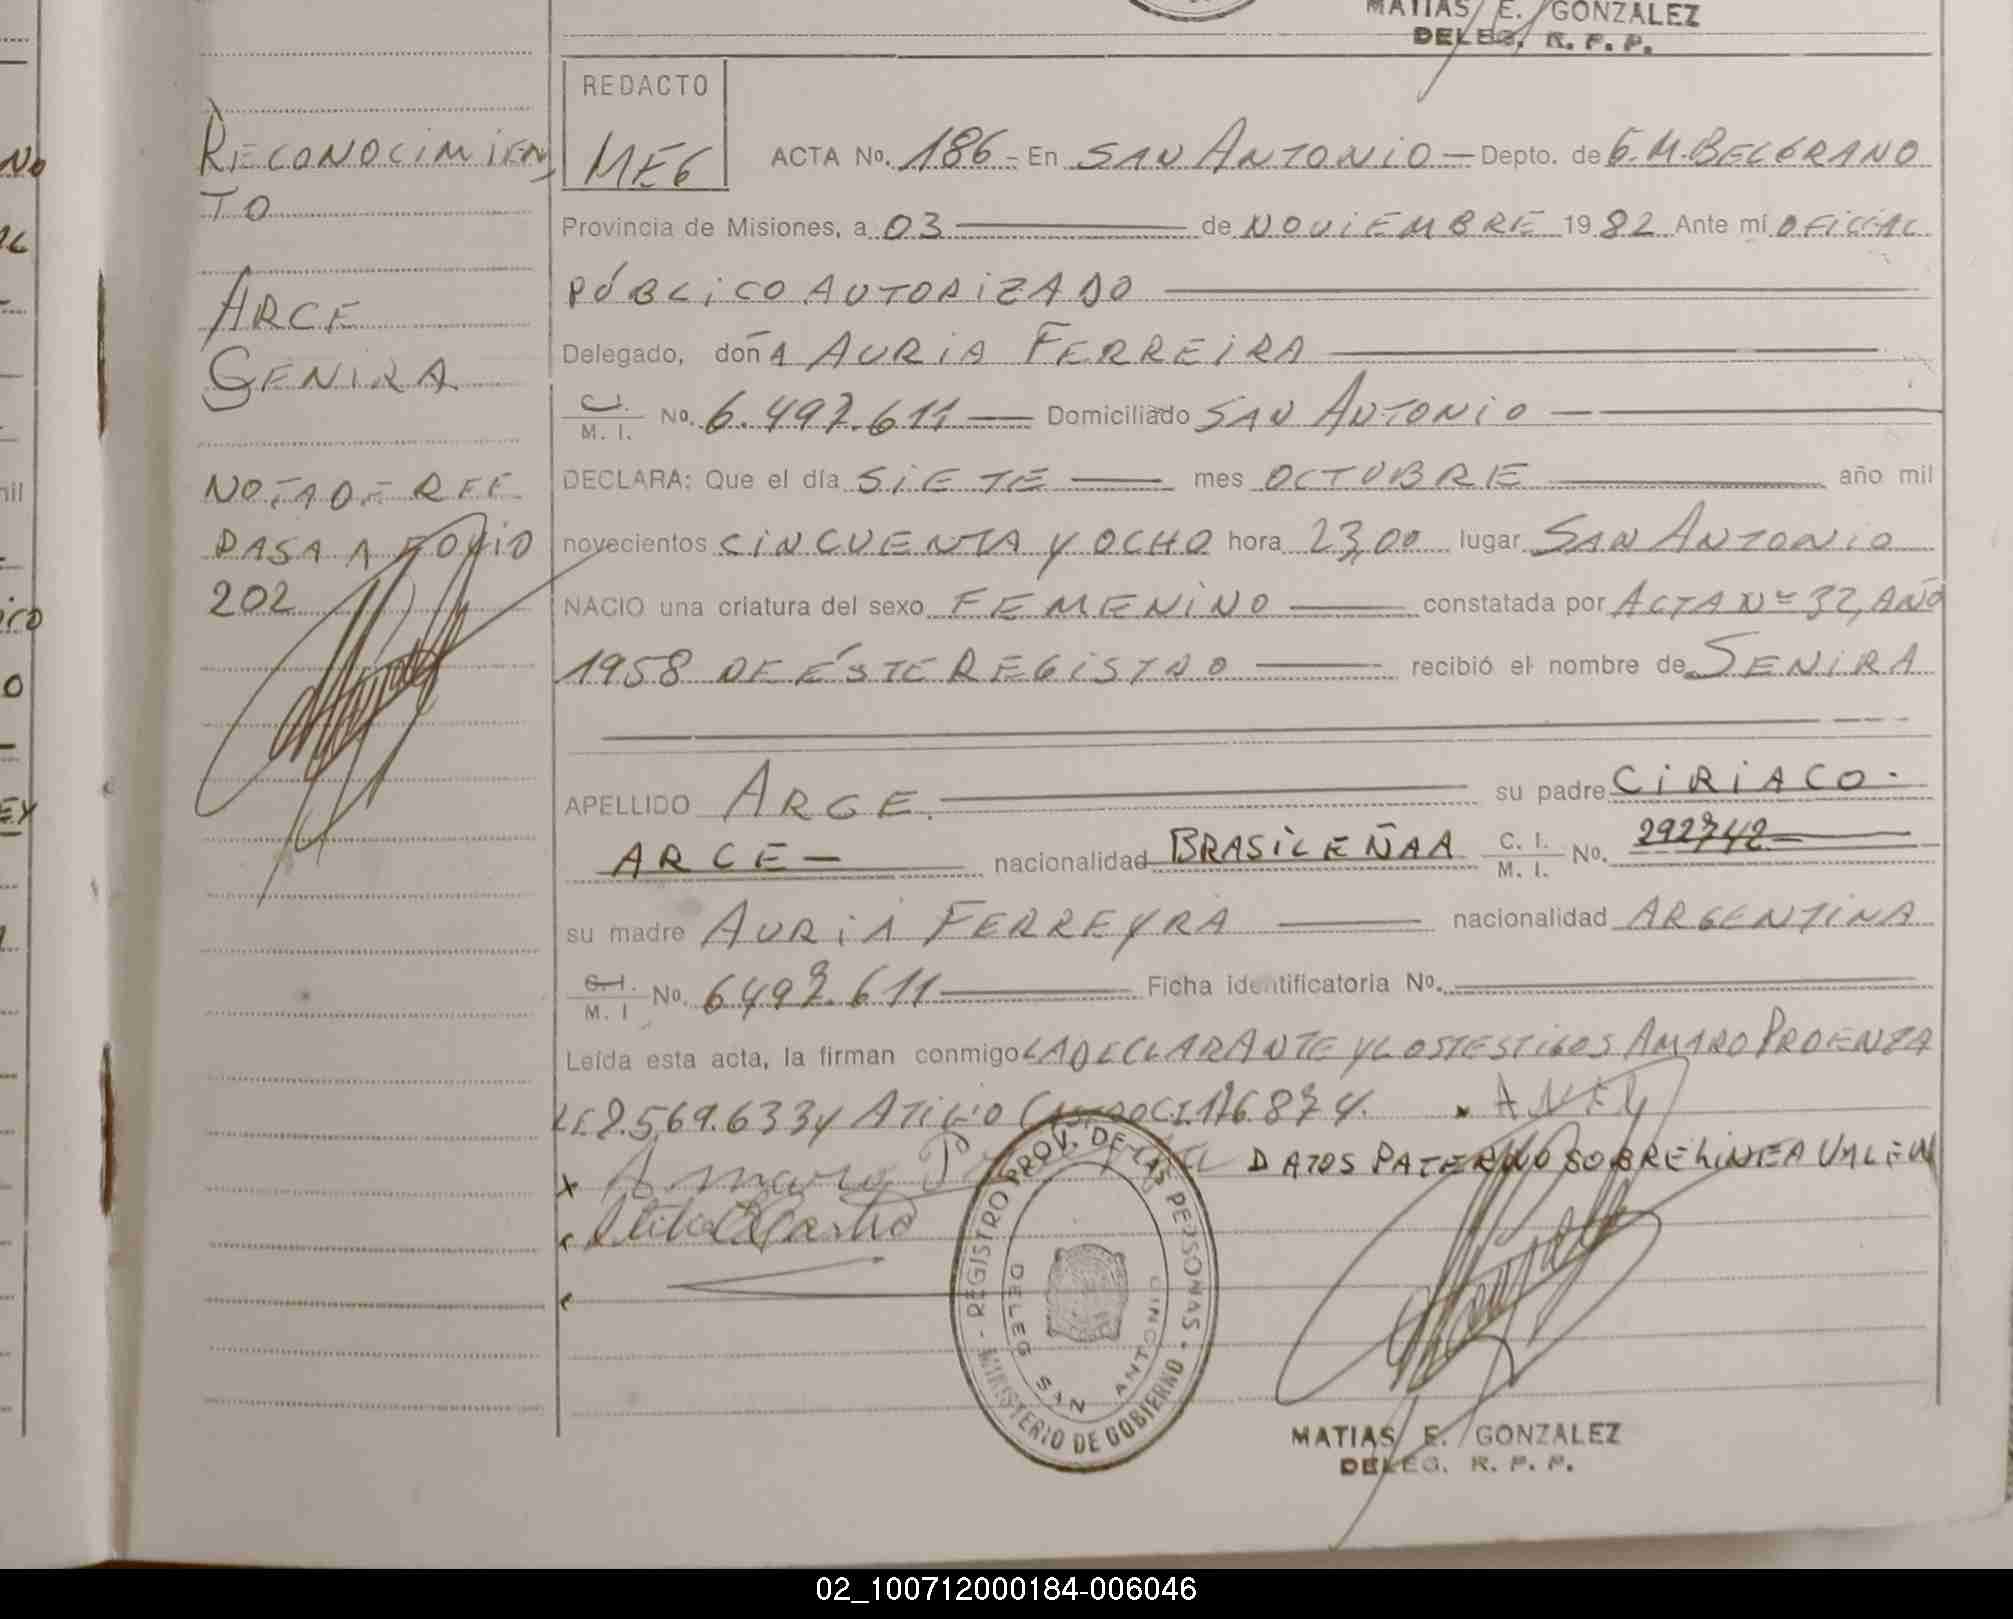 MATIAS E. GONZALEZ
DELEG. R. P. P.
RECONOCIMIEN
TO
ARCE
SENIRA
NOTA DE REF
PASA A FOLIO
202
REDACTO
MEG
ACTA No. 186 - En SAN ANTONIO - Depto. de G. M. BELGRANO
Provincia de Misiones, a 03 de NOVIEMBRE 1982 Ante mí OFICIAL
PÚBLICO AUTORIZADO
Delegado, doñA AURIA FERREIRA
C. I. / M. I. No. 6.497.611 Domiciliado SAN ANTONIO
DECLARA: Que el día SIETE mes OCTUBRE año mil
novecientos CINCUENTA Y OCHO hora 23,00 lugar SAN ANTONIO
NACIO una criatura del sexo FEMENINO constatada por ACTA Nº 32, AÑO
1958 DE ÉSTE REGISTRO recibió el nombre de SENIRA
APELLIDO ARCE. su padre CIRIACO.
ARCE nacionalidad BRASILEÑAA C. I. / M. I. No. 292742
su madre AURIA FERREYRA nacionalidad ARGENTINA
C. I. / M. I No. 6497.611 Ficha identificatoria No.
Leída esta acta, la firman conmigo LA DECLARANTE Y LOS TESTIGOS AMARO PROENZA
LE 2.569.633 y ATILIO CASTRO C.I. 176.874.
x Amaro P
DATOS PATERNO SOBRE LINEA VALEN
Atilio Castro
REGISTRO PROV. DE LAS PERSONAS - MINISTERIO DE GOBIERNO
DELEG SAN ANTONIO
MATIAS E. GONZALEZ
DELEG. R. P. P.
02_100712000184-006046